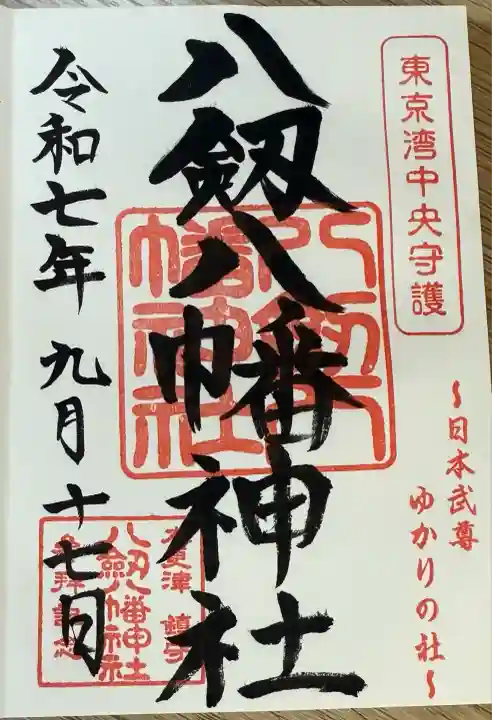 東京湾中央守護
〜日本武尊
ゆかりの社〜
八剱八幡神社
八剱八幡神社
木更津 鎮守
八剱八幡神社
参拝記念
令和七年 九月 十七日